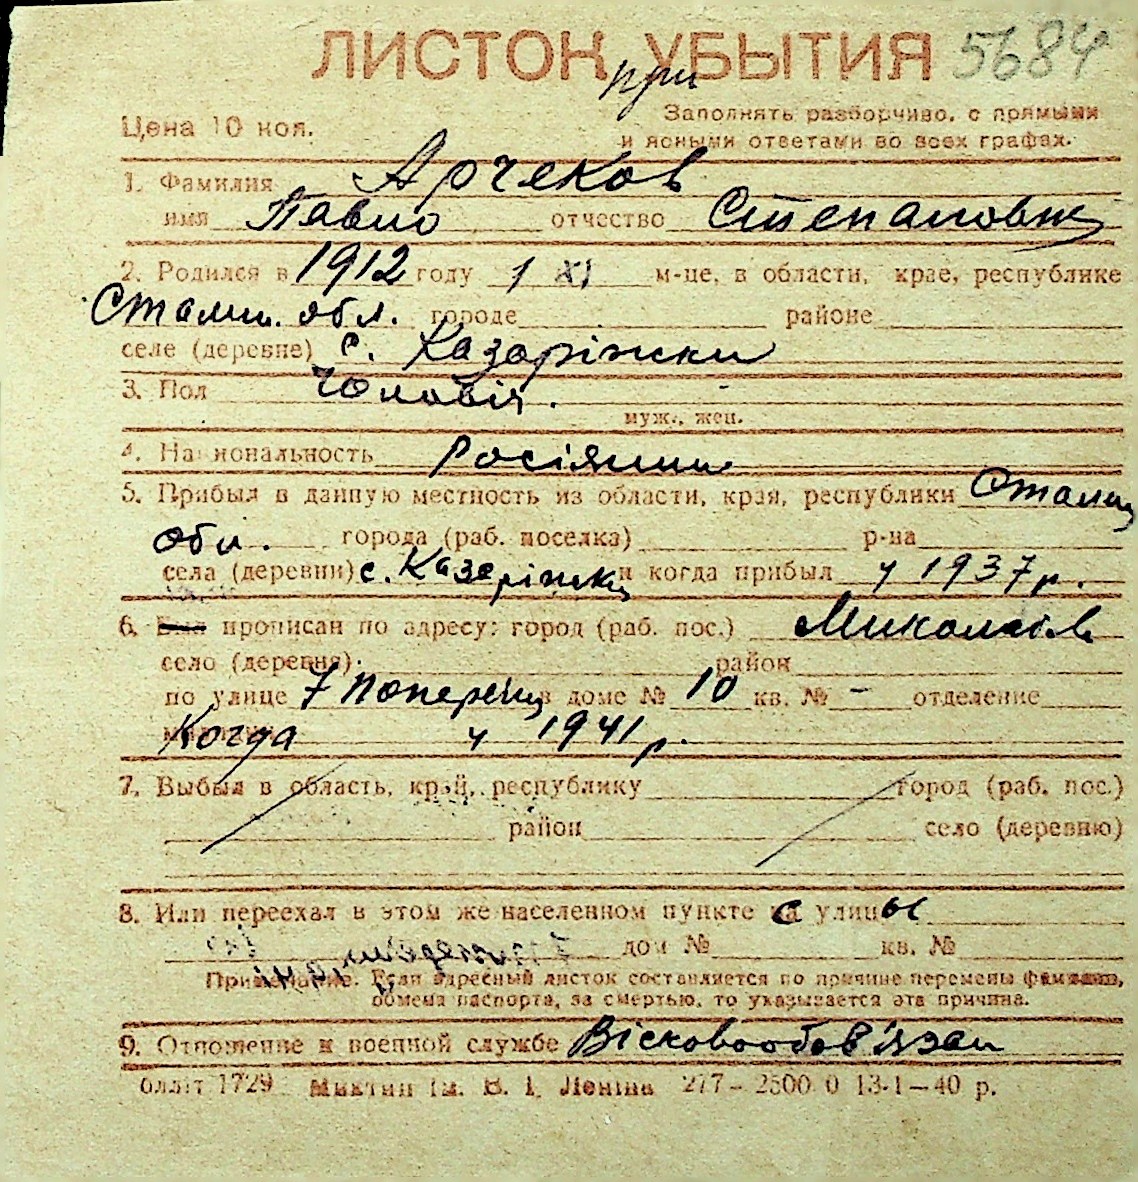 ЛИСТОК УБЫТИЯ 5684
при
Цена 10 коп.
Заполнять разборчиво, с прямыми
и ясными ответами во всех графах.
1. Фамилия Арчеков
имя Павло отчество Степанович
2. Родился в 1912 году 1 XI м-це, в области, крае, республике
Стални. обл. городе районе
селе (деревне) с. Казаріжки
3. Пол Чоловіч.
муж., жен.
4. Национальность Росіянин
5. Прибыл в данную местность из области, края, республики
обл. города (раб. поселка) р-на
села (деревни) с. Казеріжки и когда прибыл у 1937 р.
6. Был прописан по адресу: город (раб. пос.) Миколаїв
село (деревня) район
по улице 7 Попереч в доме № 10 кв. № – отделение
Когда у 1941 р.
7. Выбыл в область, край, республику город (раб. пос.)
район село (деревню)
8. Или переехал в этом же населенном пункте с улицы
дом № кв. №
Примечание. Если адресный листок составляется по причине перемены фамилии,
обмена паспорта, за смертью, то указывается эта причина.
9. Отношение к военной службе Вісковообов'язан
обліт 1729 Миктип ім. В. І. Леніна 277–2500 0 13-1–40 р.